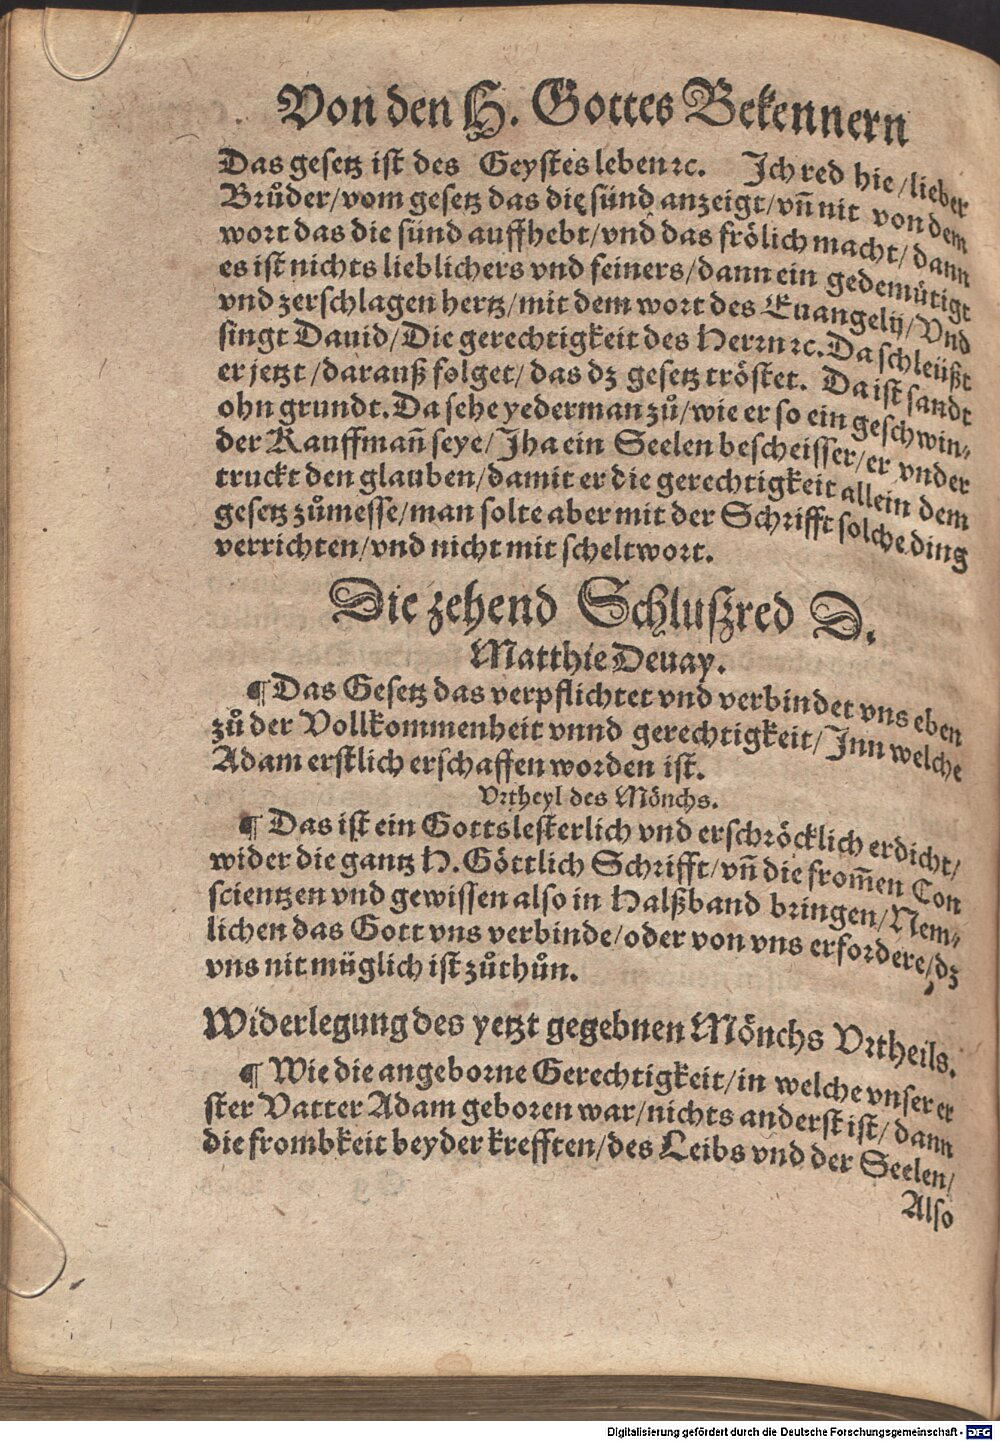 Von den H. Gottes Bekennern
Das gesetz ist des Geystes leben ꝛc. Ich red hie / lieber
Brůder / vom gesetz das die sünd anzeigt / vñ nit von dem
wort das die sünd auffhebt / vnd das frölich macht / dann
es ist nichts lieblichers vnd feiners / dann ein gedemütigt
vnd zerschlagen hertz / mit dem wort des Euangelij / Vnd
singt Dauid / Die gerechtigkeit des Herrn ꝛc. Da schleüßt
er jetzt / darauß folget / das dz gesetz tröstet. Da ist sandt
ohn grundt. Da sehe yederman zů / wie er so ein geschwin-
der Kauffmañ seye / Jha ein Seelen bescheisser / er vnder
truckt den glauben / damit er die gerechtigkeit allein dem
gesetz zůmesse / man solte aber mit der Schrifft solche ding
verrichten / vnd nicht mit scheltwort.
Die zehend Schlußred D.
Matthie Deuay.
¶ Das Gesetz das verpflichtet vnd verbindet vns eben
zů der Vollkommenheit vnnd gerechtigkeit / Inn welche
Adam erstlich erschaffen worden ist.
Vrtheyl des Mönchs.
¶ Das ist ein Gottslesterlich vnd erschröcklich erdicht /
wider die gantz H. Göttlich Schrifft / vñ die from̃en Con
scientzen vnd gewissen also in Halßband bringen / Nem-
lichen das Gott vns verbinde / oder von vns erfordere / dz
vns nit müglich ist zůthůn.
Widerlegung des yetzt gegebnen Mönchs Vrtheils.
¶ Wie die angeborne Gerechtigkeit / in welche vnser er
ster Vatter Adam geboren war / nichts anderst ist / dann
die frombkeit beyder krefften / des Leibs vnd der Seelen /
Also
Digitalisierung gefördert durch die Deutsche Forschungsgemeinschaft - DFG